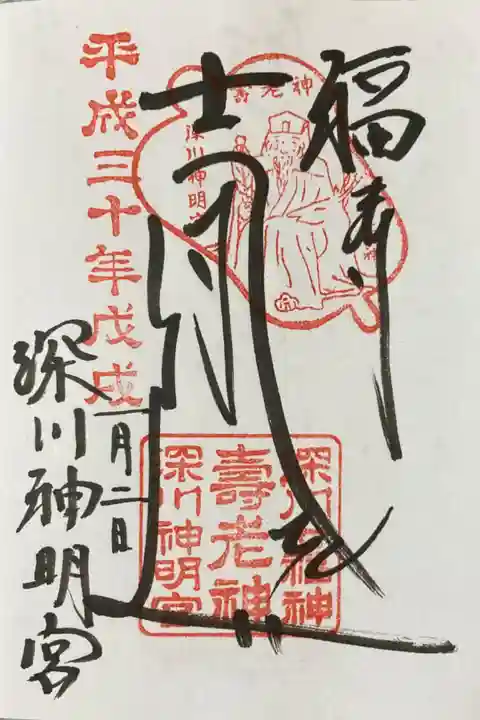 福寿
平成三十年戊戌
一月二日
深川神明宮
壽老神
深川神明宮
深川七福神
壽老神
深川神明宮